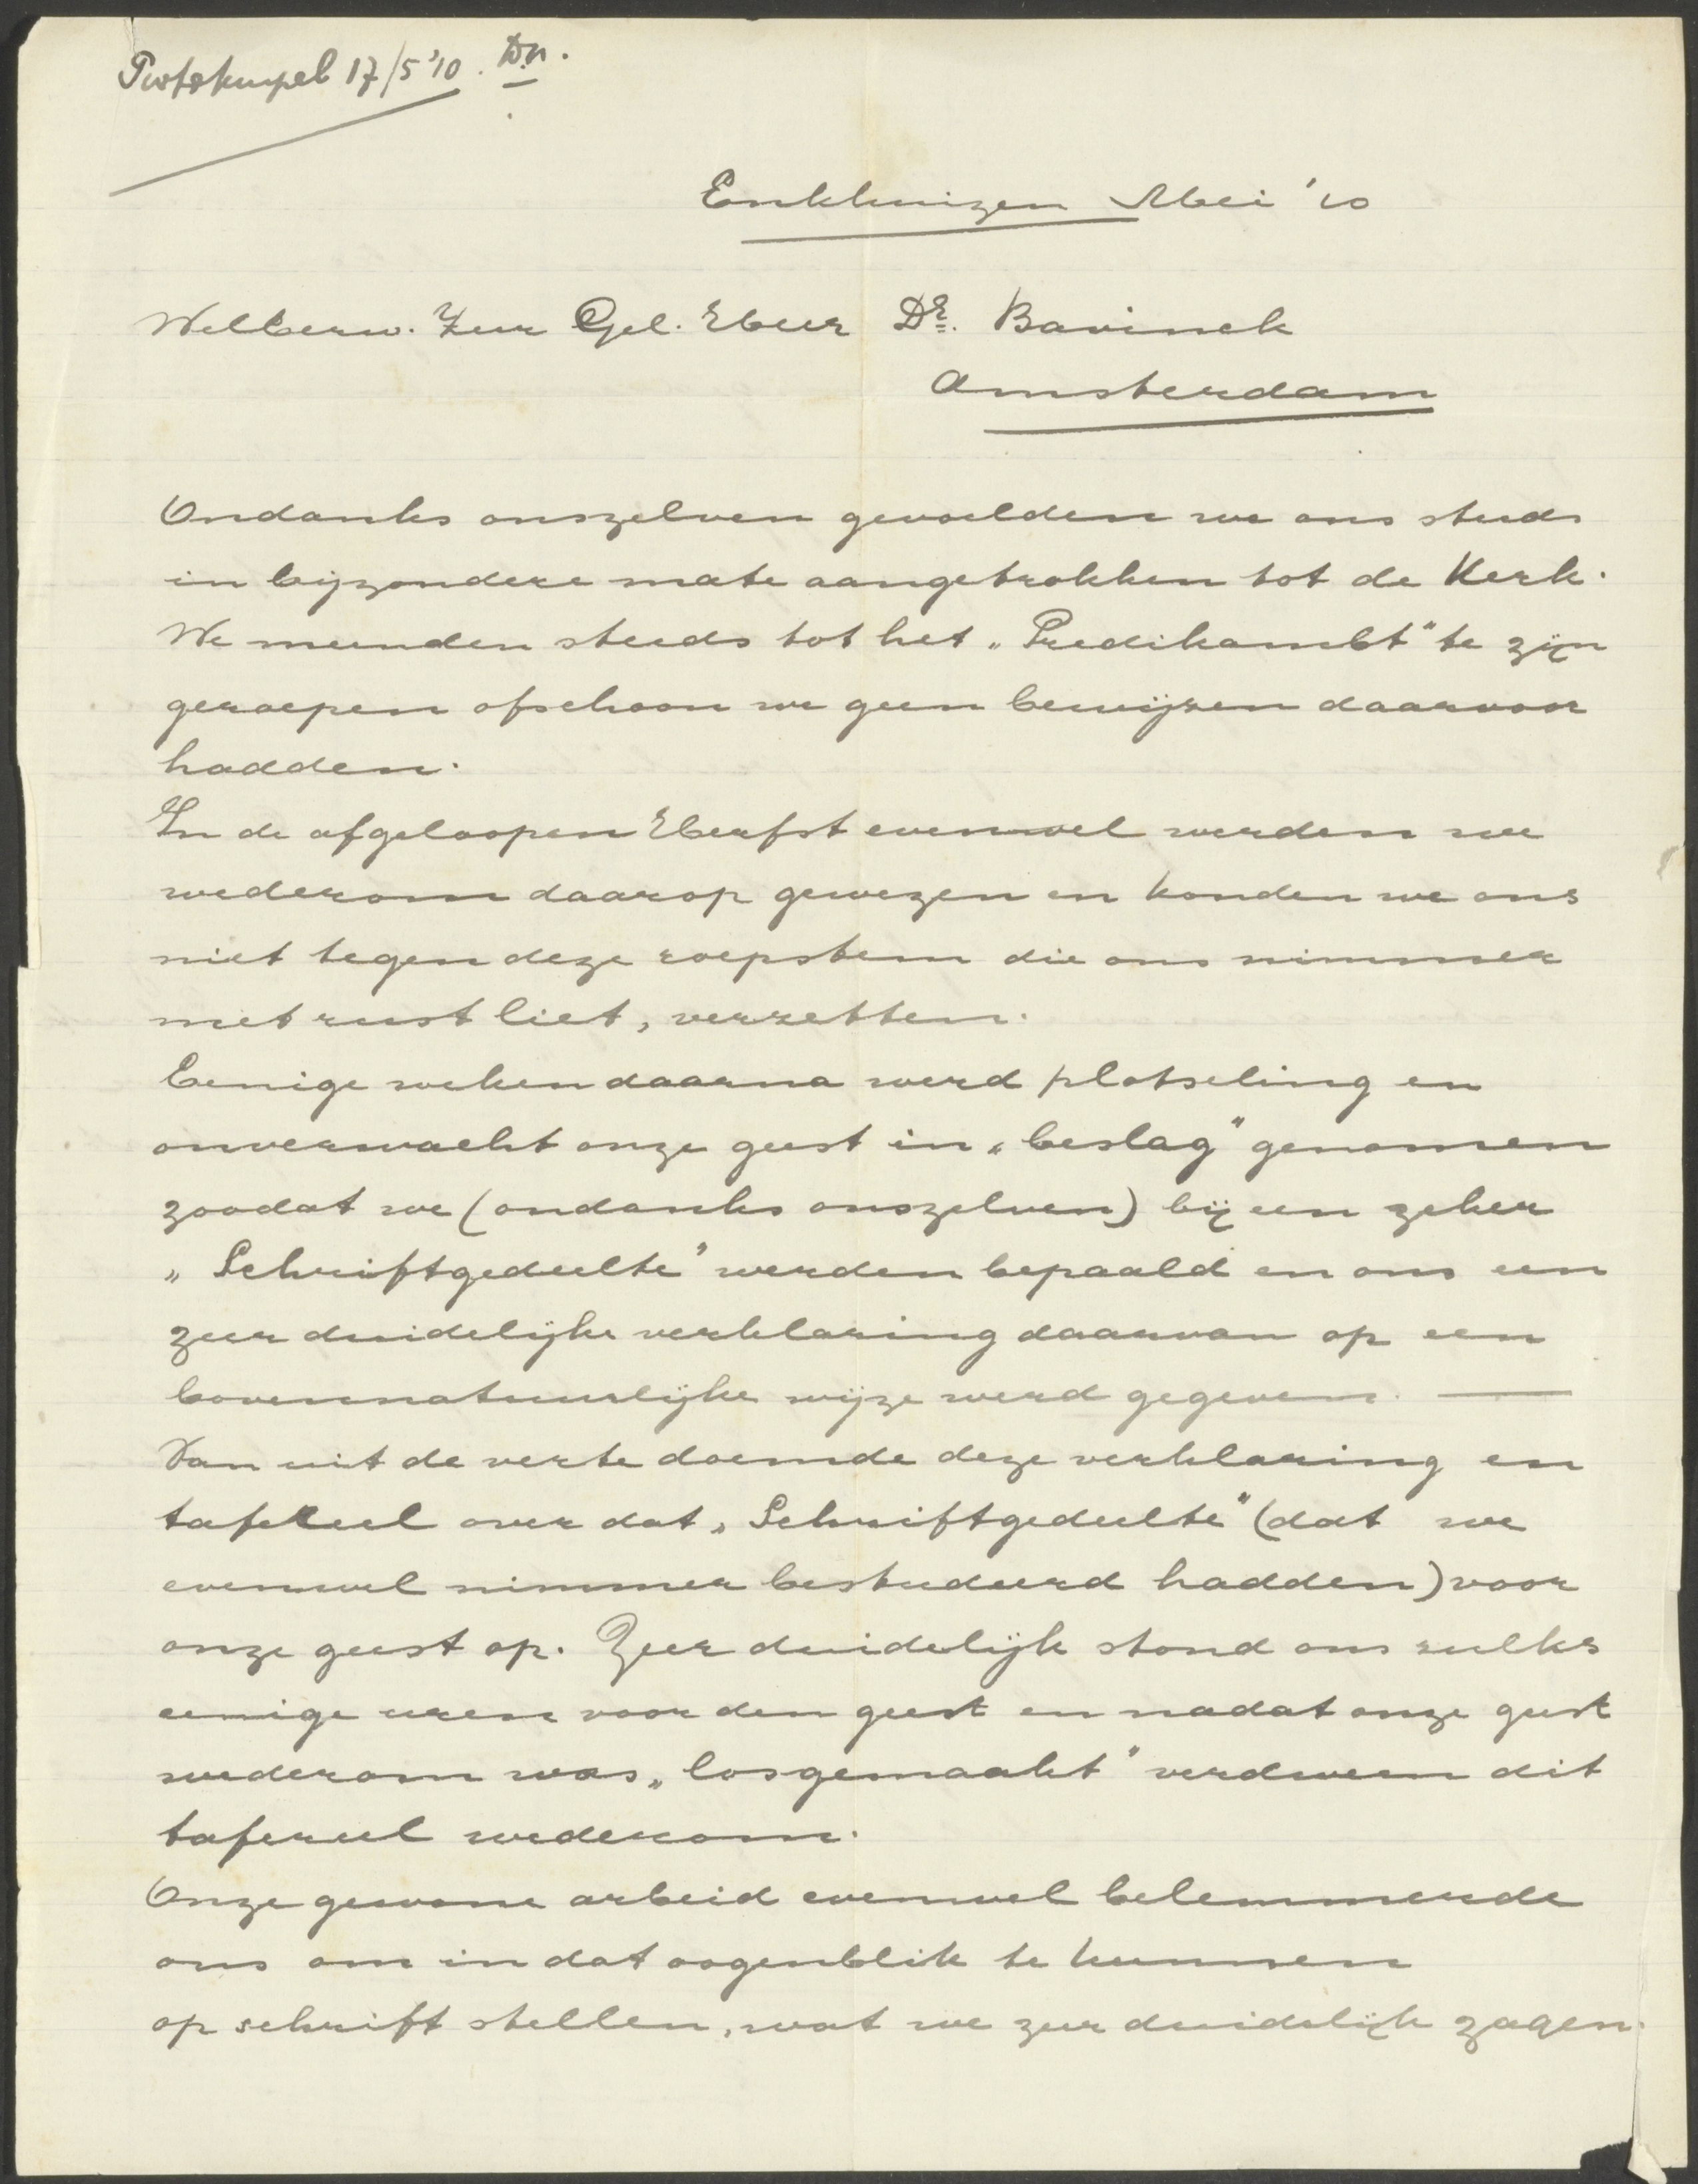 Poststempel 17/5 '10. Dn.
Enkhuizen Mei '10
Weleerw. Zeer Gel. Heer Dr. Bavinck
Amsterdam
Ondanks onszelven gevoelden we ons steeds
in bijzondere mate aangetrokken tot de Kerk.
We meenden steeds tot het „Predikambt" te zijn
geroepen ofschoon we geen bewijzen daarvoor
hadden.
In de afgeloopen Herfst evenwel werden we
wederom daarop gewezen en konden we ons
niet tegen deze roepstem die ons nimmer
met rust liet, verzetten.
Eenige weken daarna werd plotseling en
onverwacht onze geest in „beslag" genomen
zoodat we (ondanks onszelven) bij een zeker
„Schriftgedeelte" werden bepaald en ons een
zeer duidelijke verklaring daarvan op een
bovennatuurlijke wijze werd gegeven. —
Van uit de verte doemde deze verklaring en
tafereel over dat „Schriftgedeelte" (dat we
evenwel nimmer bestudeerd hadden) voor
onze geest op. Zeer duidelijk stond ons zulks
eenige uren voor den geest en nadat onze geest
wederom was „losgemaakt" verdween dit
tafereel wederom.
Onze gewone arbeid evenwel belemmerde
ons om in dat oogenblik te kunnen
op schrift stellen, wat we zeer duidelijk zagen.